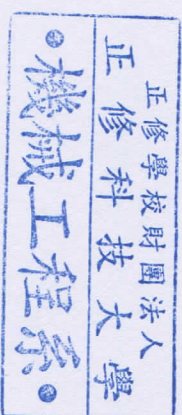 正修學校財團法人
正修科技大學
•機械工程系•